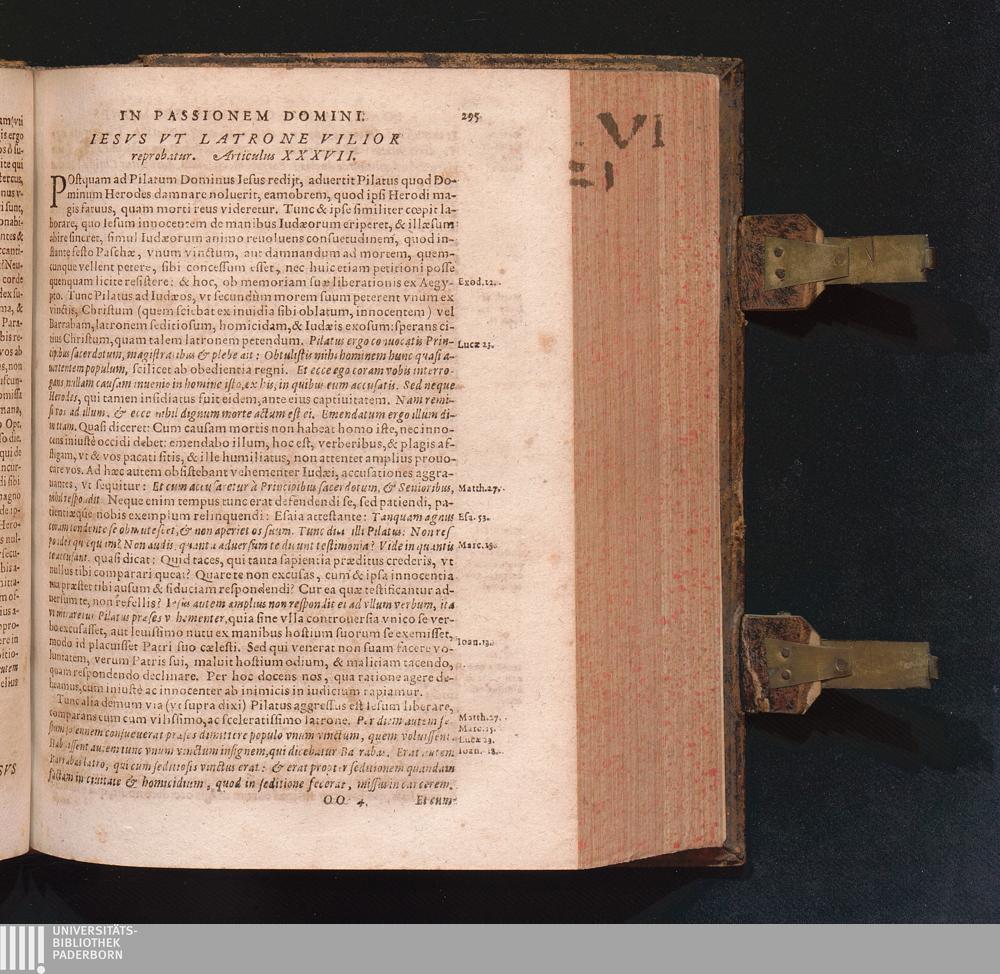 IN PASSIONEM DOMINI. 295
IESVS VT LATRONE VILIOR
reprobatur. Articulus XXXVII.
POstquam ad Pilatum Dominus Iesus redijt, aduertit Pilatus quod Do-
minum Herodes damnare noluerit, eamobrem, quod ipsi Herodi ma-
gis fatuus, quam morti reus videretur. Tunc & ipse similiter cœpit la-
borare, quo Iesum innocentem de manibus Iudæorum eriperet, & illæsum
abire sineret, simul Iudæorum animo reuoluens consuetudinem, quod in-
stante festo Paschæ, vnum vinctum, aut damnandum ad mortem, quem-
cunque vellent petere, sibi concessum esset, nec huic etiam petitioni posse
quenquam licite resistere: & hoc, ob memoriam suæ liberationis ex Aegy-
Exod. 12.
pto. Tunc Pilatus ad Iudæos, vt secundùm morem suum peterent vnum ex
vinctis, Christum (quem sciebat ex inuidia sibi oblatum, innocentem) vel
Barrabam, latronem seditiosum, homicidam, & Iudæis exosum: sperans ci-
tius Christum, quam talem latronem petendum. Pilatus ergo conuocatis Prin-
Lucæ 23.
cipibus sacerdotum, magistratibus & plebe ait: Obtulistis mihi hominem hunc quasi a-
uertentem populum, scilicet ab obedientia regni. Et ecce ego coram vobis interro-
gans nullam causam inuenio in homine isto, ex his, in quibus eum accusatis. Sed neque
Herodes, qui tamen insidiatus fuit eidem, ante eius captiuitatem. Nam remi-
si vos ad illum, & ecce nihil dignum morte actum est ei. Emendatum ergo illum di-
mittam. Quasi diceret: Cum causam mortis non habeat homo iste, nec inno-
cens iniustè occidi debet: emendabo illum, hoc est, verberibus, & plagis af-
fligam, vt & vos pacati sitis, & ille humiliatus, non attentet amplius prouo-
care vos. Ad hæc autem obsistebant vehementer Iudæi, accusationes aggra-
uantes, vt sequitur: Et cum accusaretur à Principibus sacerdotum, & Senioribus,
Matth. 27.
nihil respondit. Neque enim tempus tunc erat defendendi se, sed patiendi, pa-
tientiæque nobis exemplum relinquendi: Esaia attestante: Tanquam agnus
Esa. 53.
coram tondente se obmutescet, & non aperiet os suum. Tunc dicit illi Pilatus: Non res
pondes quicquam? Non audis, quanta aduersum te dicunt testimonia? Vide in quantis
Marc. 15.
te accusant. quasi dicat: Quid taces, qui tanta sapientia præditus crederis, vt
nullus tibi comparari queat? Quare te non excusas, cum & ipsa innocentia
tua præstet tibi ausum & fiduciam respondendi? Cur ea quæ testificantur ad-
uersum te, non refellis? Iesus autem amplius non respondit ei ad vllum verbum, ita
vt miraretur Pilatus præses vehementer, quia sine vlla controuersia vnico se ver-
bo excusasset, aut leuissimo nutu ex manibus hostium suorum se exemisset,
modo id placuisset Patri suo cælesti. Sed qui venerat non suam facere vo-
Ioan. 13.
luntatem, verum Patris sui, maluit hostium odium, & maliciam tacendo,
quam respondendo declinare. Per hoc docens nos, qua ratione agere de-
beamus, cum iniustè ac innocenter ab inimicis in iudicium rapiamur.
Tunc alia demum via (vt supra dixi) Pilatus aggressus est Iesum liberare,
comparans eum cum vilissimo, ac sceleratissimo latrone. Per diem autem fe-
Matth. 27.
stum solennem consueuerat præses dimittere populo vnum vinctum, quem voluissent.
Marc. 15.
Lucæ 23.
Habuissent autem tunc vnum vinctum insignem, qui dicebatur Barrabas. Erat autem
Ioan. 18.
Barrabas latro, qui cum seditiosis vinctus erat: & erat propter seditionem quandam
factam in ciuitate & homicidium, quod in seditione fecerat, missus in carcerem.
OO 4. Et cum
VI
UNIVERSITÄTS-
BIBLIOTHEK
PADERBORN